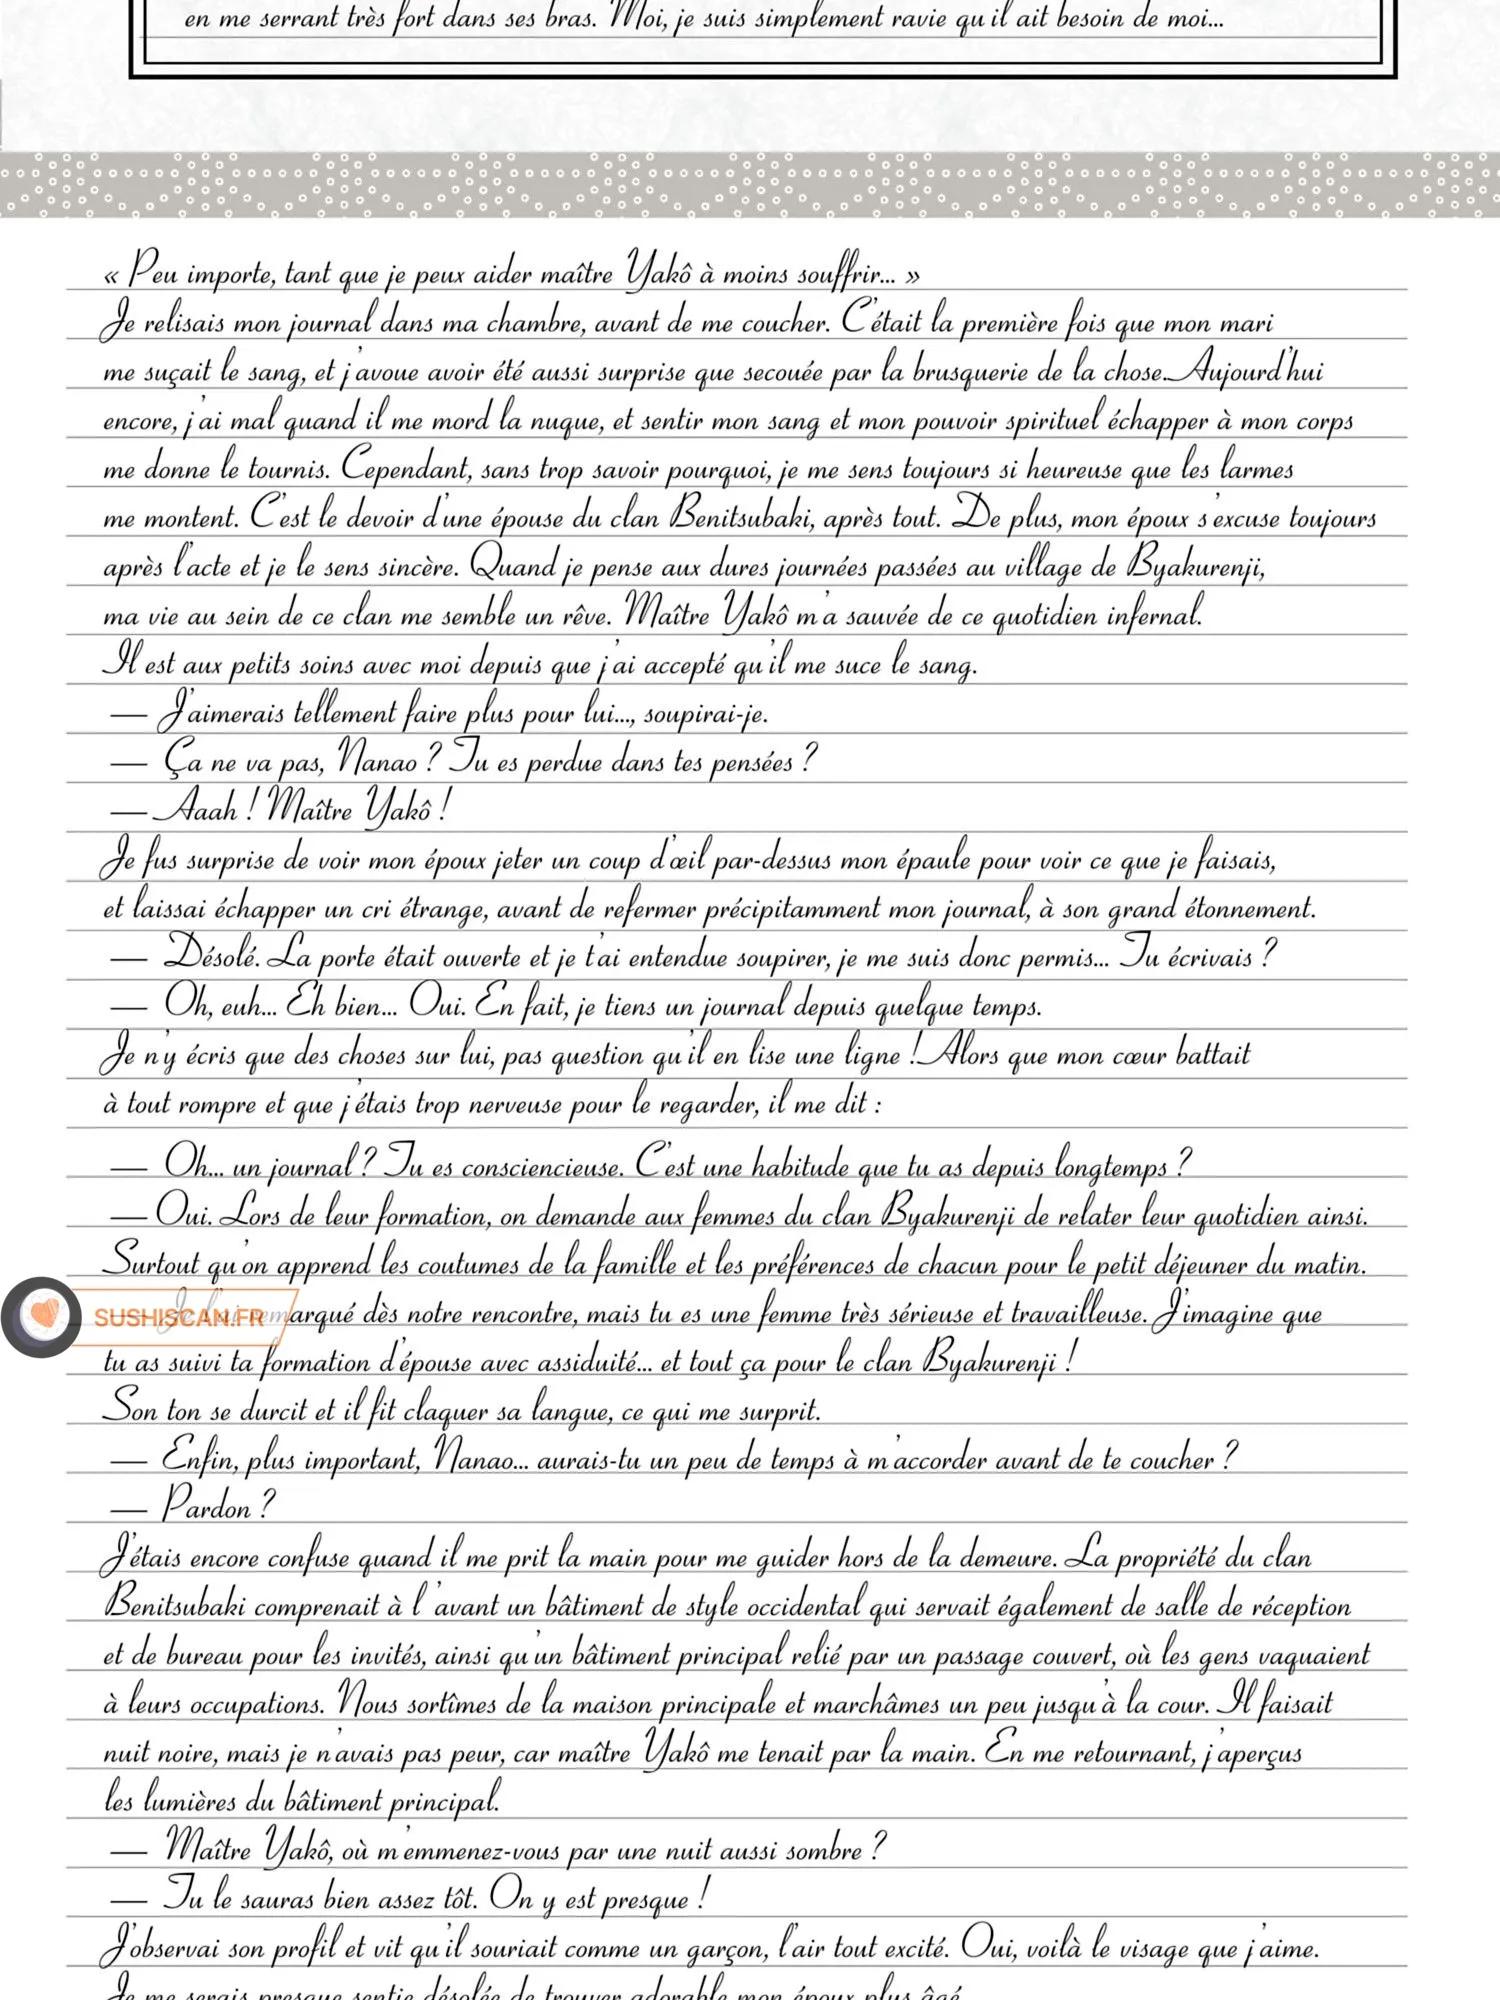 en me serrant très fort dans ses bras. Moi, je suis simplement ravie qu'il ait besoin de moi...
« Peu importe, tant que je peux aider maître Yakô à moins souffrir... »
Je relisais mon journal dans ma chambre, avant de me coucher. C'était la première fois que mon mari
me suçait le sang, et j'avoue avoir été aussi surprise que secouée par la brusquerie de la chose... Aujourd'hui
encore, j'ai mal quand il me mord la nuque, et sentir mon sang et mon pouvoir spirituel échapper à mon corps
me donne le tournis. Cependant, sans trop savoir pourquoi, je me sens toujours si heureuse que les larmes
me montent. C'est le devoir d'une épouse du clan Benitsubaki, après tout. De plus, mon époux s'excuse toujours
après l'acte et je le sens sincère. Quand je pense aux dures journées passées au village de Byakurenji,
ma vie au sein de ce clan me semble un rêve. Maître Yakô m'a sauvée de ce quotidien infernal.
Il est aux petits soins avec moi depuis que j'ai accepté qu'il me suce le sang.
— J'aimerais tellement faire plus pour lui..., soupirai-je.
— Ça ne va pas, Nanao ? Tu es perdue dans tes pensées ?
— Aaah ! Maître Yakô !
Je fus surprise de voir mon époux jeter un coup d'œil par-dessus mon épaule pour voir ce que je faisais,
et laissai échapper un cri étrange, avant de refermer précipitamment mon journal, à son grand étonnement.
— Désolé. La porte était ouverte et je t'ai entendue soupirer, je me suis donc permis... Tu écrivais ?
— Oh, euh... Eh bien... Oui. En fait, je tiens un journal depuis quelque temps.
Je n'y écris que des choses sur lui, pas question qu'il en lise une ligne ! Alors que mon cœur battait
à tout rompre et que j'étais trop nerveuse pour le regarder, il me dit :
— Oh... un journal ? Tu es consciencieuse. C'est une habitude que tu as depuis longtemps ?
— Oui. Lors de leur formation, on demande aux femmes du clan Byakurenji de relater leur quotidien ainsi.
Surtout qu'on apprend les coutumes de la famille et les préférences de chacun pour le petit déjeuner du matin.
SUSHISCAN.FR
Je l'ai remarqué dès notre rencontre, mais tu es une femme très sérieuse et travailleuse. J'imagine que
tu as suivi ta formation d'épouse avec assiduité... et tout ça pour le clan Byakurenji !
Son ton se durcit et il fit claquer sa langue, ce qui me surprit.
— Enfin, plus important, Nanao... aurais-tu un peu de temps à m'accorder avant de te coucher ?
— Pardon ?
J'étais encore confuse quand il me prit la main pour me guider hors de la demeure. La propriété du clan
Benitsubaki comprenait à l'avant un bâtiment de style occidental qui servait également de salle de réception
et de bureau pour les invités, ainsi qu'un bâtiment principal relié par un passage couvert, où les gens vaquaient
à leurs occupations. Nous sortîmes de la maison principale et marchâmes un peu jusqu'à la cour. Il faisait
nuit noire, mais je n'avais pas peur, car maître Yakô me tenait par la main. En me retournant, j'aperçus
les lumières du bâtiment principal.
— Maître Yakô, où m'emmenez-vous par une nuit aussi sombre ?
— Tu le sauras bien assez tôt. On y est presque !
J'observai son profil et vit qu'il souriait comme un garçon, l'air tout excité. Oui, voilà le visage que j'aime.
Je me serais presque sentie désolée de trouver adorable mon époux plus âgé